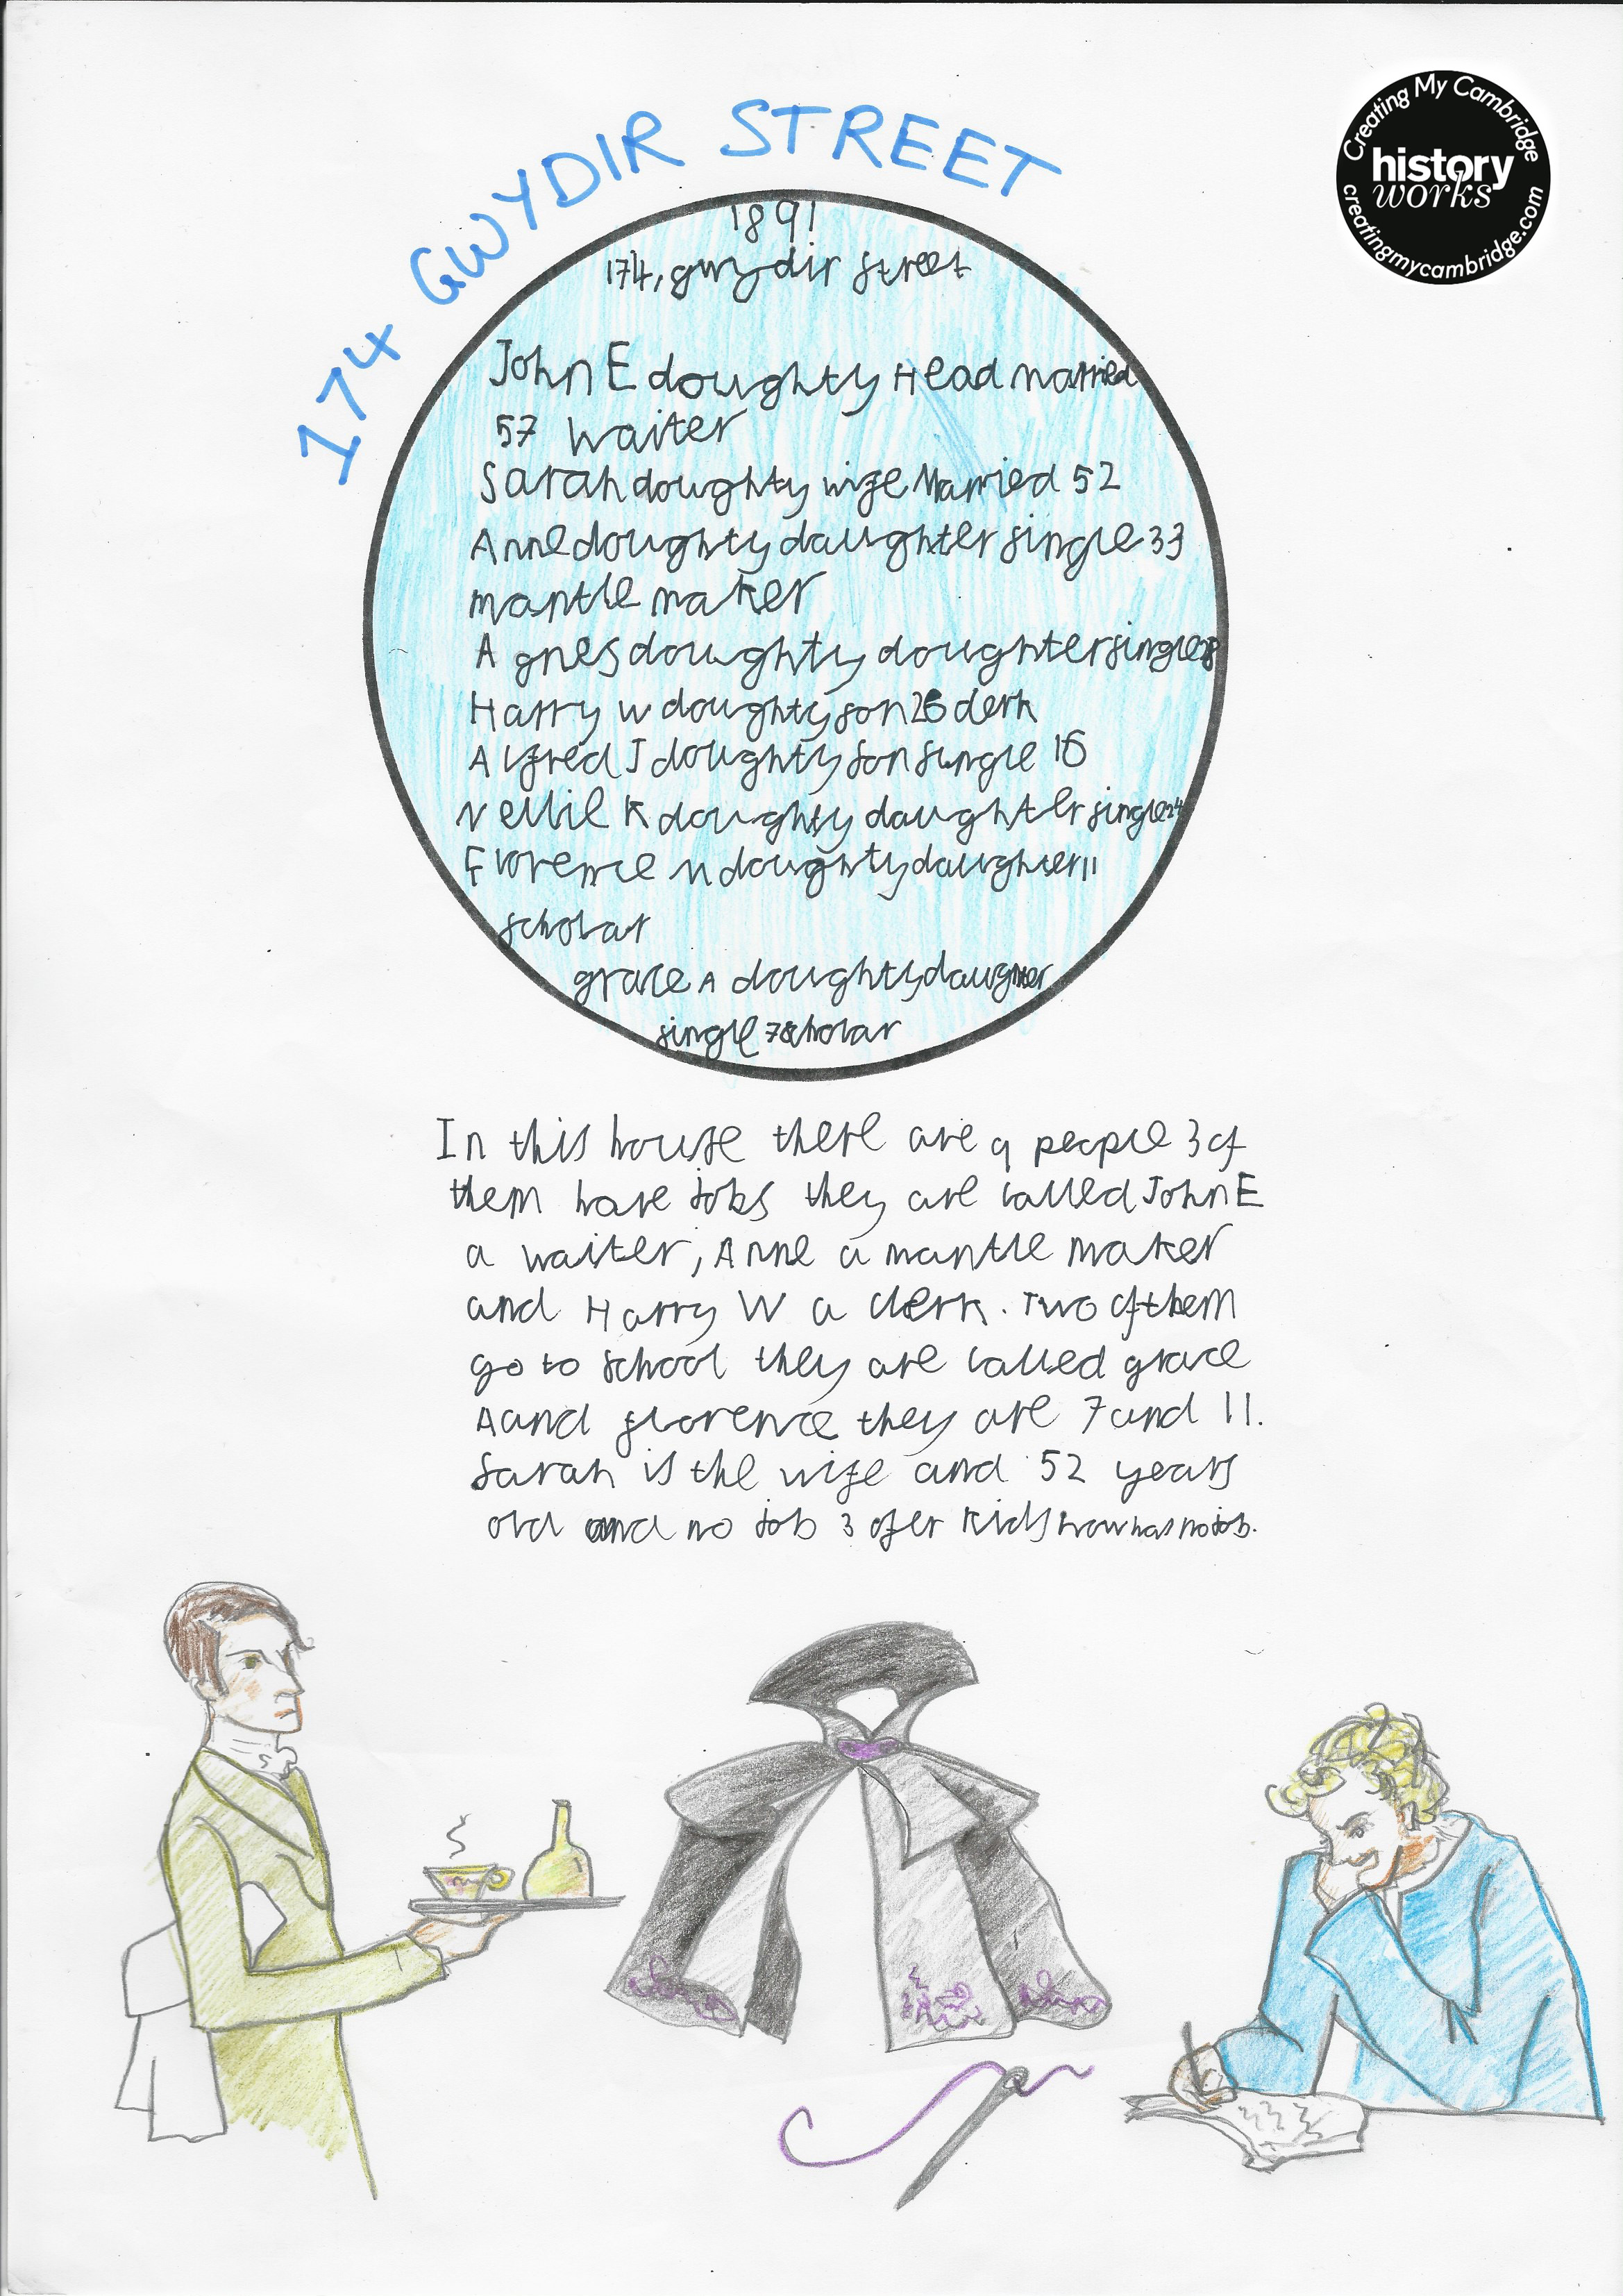 174 GWYDIR STREET
Creating My Cambridge
history
works
creatingmycambridge.com
1891
174, gwydir street
John E doughty Head married
57 waiter
Sarah doughty wife Married 52
Anne doughty daughter single 33
mantle maker
Agnes doughty doughter single 28
Harry W doughty son 26 clerk
Alfred J doughty son single 16
Nellie K doughty daughter single 24
Florence N doughty daughter 11
scholar
grace A doughty daughter
single 7 scholar
In this house there are 9 people 3 of
them have jobs they are called John E
a waiter, Anne a mantle maker
and Harry W a clerk. Two of them
go to school they are called grace
A and florence they are 7 and 11.
Sarah is the wife and 52 years
old and no job 3 of er kids how has no job.